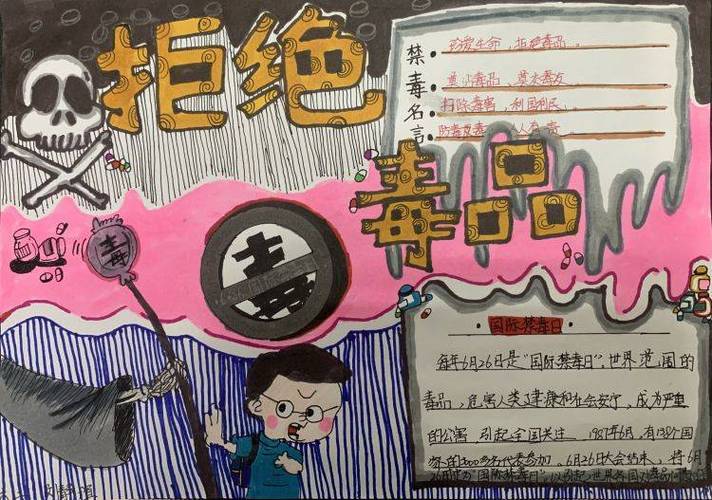 拒绝
毒品
禁毒名言
珍爱生命,拒绝毒品。
莫沾毒品,莫交毒友
扫除毒害,利国利民。
防毒反毒,人人有责
毒
毒
·国际禁毒日·
每年6月26日是"国际禁毒日",世界范围的
毒品,危害人类健康和社会安宁,成为严重
的公害,引起全国关注 1987年6月,有138个国
家的3000多名代表参加,6月26日大会结束,将6月
26日定为"国际禁毒日",以引起世界各国对毒品